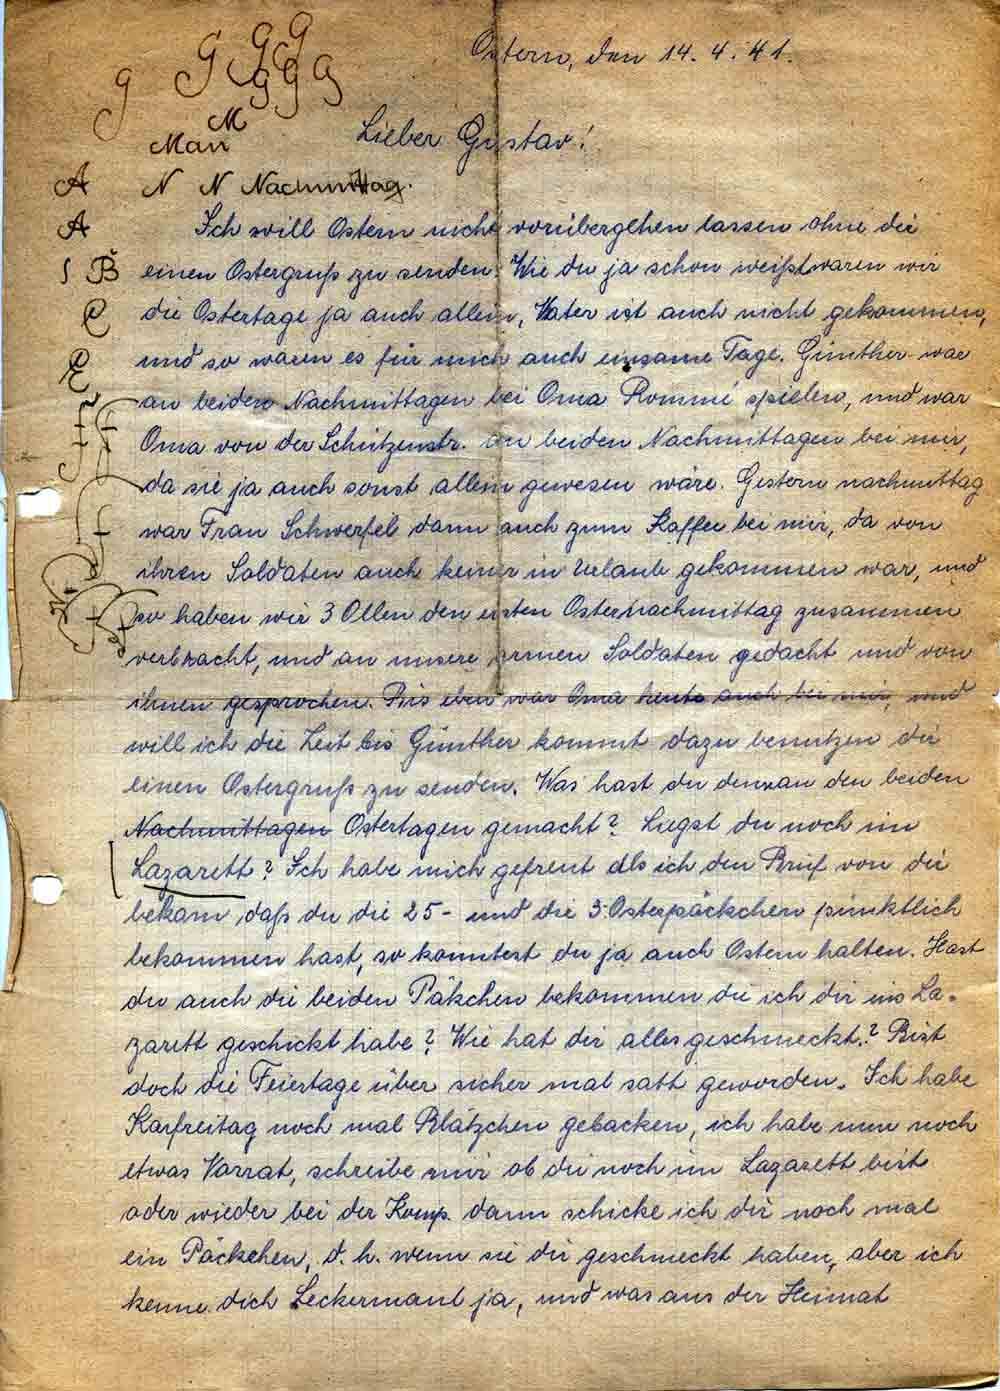 g G G G G g g g g
Ostern, den 14.4.41.
M
Man
Lieber Gustav!
A N N Nachmittag.
A
1 B
C
E
Ich will Ostern nicht vorübergehen lassen ohne dir
einen Ostergruß zu senden. Wie du ja schon weißt waren wir
die Ostertage ja auch allein, Vater ist auch nicht gekommen,
und so waren es für mich auch einsame Tage. Günther war
an beiden Nachmittagen bei Oma Rommé spielen, und war
Oma von der Schützenstr. an beiden Nachmittagen bei mir,
da sie ja auch sonst allein gewesen wäre. Gestern nachmittag
war Frau Schwerfel dann auch zum Kaffee bei mir, da von
ihren Soldaten auch keiner in Urlaub gekommen war, und
so haben wir 3 Ollen den ersten Osternachmittag zusammen
verbracht, und an unsere armen Soldaten gedacht und von
ihnen gesprochen. Bis eben war Oma heute auch bei mir, und
will ich die Zeit bis Günther kommt dazu benutzen dir
einen Ostergruß zu senden. Was hast du denn an den beiden
Nachmittagen Ostertagen gemacht? Liegst du noch im
Lazarett? Ich habe mich gefreut als ich den Brief von dir
bekam, daß du die 25- und die 3 Osterpäckchen pünktlich
bekommen hast, so konntest du ja auch Ostern halten. Hast
du auch die beiden Päkchen bekommen die ich dir ins La-
zarett geschickt habe? Wie hat dir alles geschmeckt.? Bist
doch die Feiertage über sicher mal satt geworden. Ich habe
Karfreitag noch mal Plätzchen gebacken, ich habe nun noch
etwas Vorrat, schreibe mir ob du noch im Lazarett bist
oder wieder bei der Komp. dann schicke ich dir noch mal
ein Päckchen, d.h. wenn sie dir geschmeckt haben, aber ich
kenne dich Leckermaul ja, und was aus der Heimat